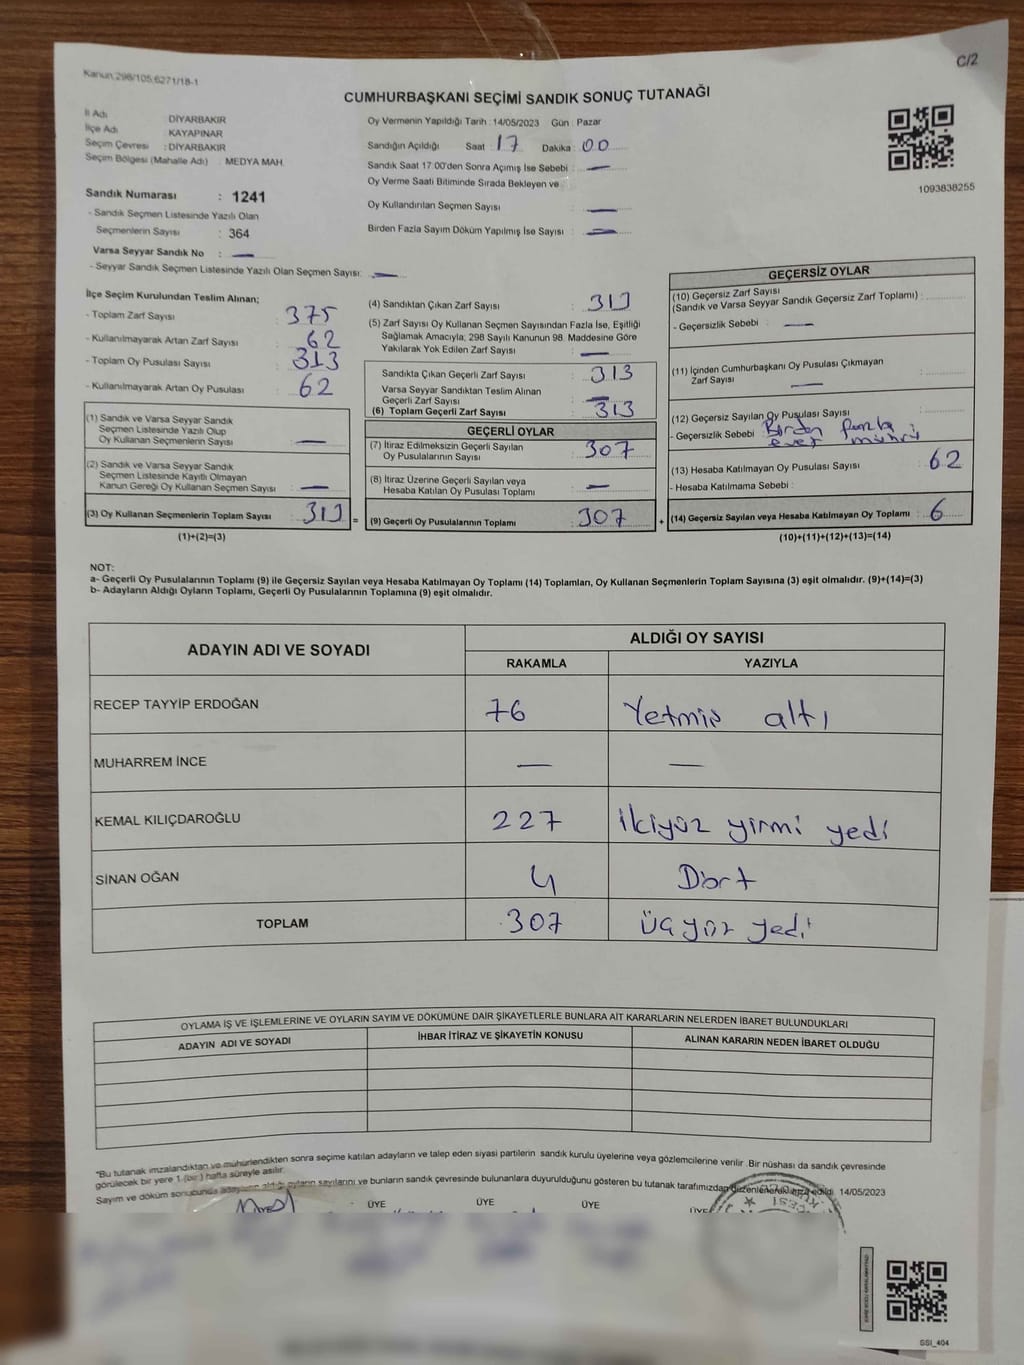 C/2
Kanun:298/105;6271/18-1
CUMHURBAŞKANI SEÇİMİ SANDIK SONUÇ TUTANAĞI
İl Adı : DİYARBAKIR
İlçe Adı : KAYAPINAR
Seçim Çevresi : DİYARBAKIR
Seçim Bölgesi (Mahalle Adı) : MEDYA MAH.
Sandık Numarası : 1241
- Sandık Seçmen Listesinde Yazılı Olan
Seçmenlerin Sayısı : 364
Varsa Seyyar Sandık No : —
- Seyyar Sandık Seçmen Listesinde Yazılı Olan Seçmen Sayısı: —
Oy Vermenin Yapıldığı Tarih : 14/05/2023 Gün : Pazar
Sandığın Açıldığı Saat : 17 Dakika : 00
Sandık Saat 17:00'den Sonra Açılmış İse Sebebi : —
Oy Verme Saati Bitiminde Sırada Bekleyen ve
Oy Kullandırılan Seçmen Sayısı : —
Birden Fazla Sayım Döküm Yapılmış İse Sayısı : —
1093838255
İlçe Seçim Kurulundan Teslim Alınan;
- Toplam Zarf Sayısı : 375
- Kullanılmayarak Artan Zarf Sayısı : 62
- Toplam Oy Pusulası Sayısı : 313
- Kullanılmayarak Artan Oy Pusulası : 62
(1) Sandık ve Varsa Seyyar Sandık
Seçmen Listesinde Yazılı Olup
Oy Kullanan Seçmenlerin Sayısı : —
(2) Sandık ve Varsa Seyyar Sandık
Seçmen Listesinde Kayıtlı Olmayan
Kanun Gereği Oy Kullanan Seçmen Sayısı : —
(3) Oy Kullanan Seçmenlerin Toplam Sayısı : 313 =
(1)+(2)=(3)
(4) Sandıktan Çıkan Zarf Sayısı : 313
(5) Zarf Sayısı Oy Kullanan Seçmen Sayısından Fazla İse, Eşitliği
Sağlamak Amacıyla; 298 Sayılı Kanunun 98. Maddesine Göre
Yakılarak Yok Edilen Zarf Sayısı : —
Sandıkta Çıkan Geçerli Zarf Sayısı : 313
Varsa Seyyar Sandıktan Teslim Alınan
Geçerli Zarf Sayısı : —
(6) Toplam Geçerli Zarf Sayısı : 313
GEÇERLİ OYLAR
(7) İtiraz Edilmeksizin Geçerli Sayılan
Oy Pusulalarının Sayısı : 307
(8) İtiraz Üzerine Geçerli Sayılan veya
Hesaba Katılan Oy Pusulası Toplamı : —
(9) Geçerli Oy Pusulalarının Toplamı : 307 +
GEÇERSİZ OYLAR
(10) Geçersiz Zarf Sayısı
(Sandık ve Varsa Seyyar Sandık Geçersiz Zarf Toplamı) :
- Geçersizlik Sebebi : —
(11) İçinden Cumhurbaşkanı Oy Pusulası Çıkmayan
Zarf Sayısı : —
(12) Geçersiz Sayılan Oy Pusulası Sayısı :
- Geçersizlik Sebebi : Birden fazla
evet mührü
(13) Hesaba Katılmayan Oy Pusulası Sayısı : 62
- Hesaba Katılmama Sebebi :
(14) Geçersiz Sayılan veya Hesaba Katılmayan Oy Toplamı : 6
(10)+(11)+(12)+(13)=(14)
NOT:
a- Geçerli Oy Pusulalarının Toplamı (9) ile Geçersiz Sayılan veya Hesaba Katılmayan Oy Toplamı (14) Toplamları, Oy Kullanan Seçmenlerin Toplam Sayısına (3) eşit olmalıdır. (9)+(14)=(3)
b- Adayların Aldığı Oyların Toplamı, Geçerli Oy Pusulalarının Toplamına (9) eşit olmalıdır.
ADAYIN ADI VE SOYADI ALDIĞI OY SAYISI
RAKAMLA YAZIYLA
RECEP TAYYİP ERDOĞAN 76 Yetmiş altı
MUHARREM İNCE — —
KEMAL KILIÇDAROĞLU 227 ikiyüz yirmi yedi
SİNAN OĞAN 4 Dört
TOPLAM 307 üçyüz yedi
OYLAMA İŞ VE İŞLEMLERİNE VE OYLARIN SAYIM VE DÖKÜMÜNE DAİR ŞİKAYETLERLE BUNLARA AİT KARARLARIN NELERDEN İBARET BULUNDUKLARI
ADAYIN ADI VE SOYADI İHBAR İTİRAZ VE ŞİKAYETİN KONUSU ALINAN KARARIN NEDEN İBARET OLDUĞU
*Bu tutanak imzalandıktan ve mühürlendikten sonra seçime katılan adayların ve talep eden siyasi partilerin sandık kurulu üyelerine veya gözlemcilerine verilir. Bir nüshası da sandık çevresinde
görülecek bir yere 1 (bir) hafta süreyle asılır.
Sayım ve döküm sonucunda adayların aldığı oyların sayılarını ve bunların sandık çevresinde bulunanlara duyurulduğunu gösteren bu tutanak tarafımızdan düzenlenerek imza edildi. 14/05/2023
ÜYE ÜYE ÜYE ÜYE
SSI_404